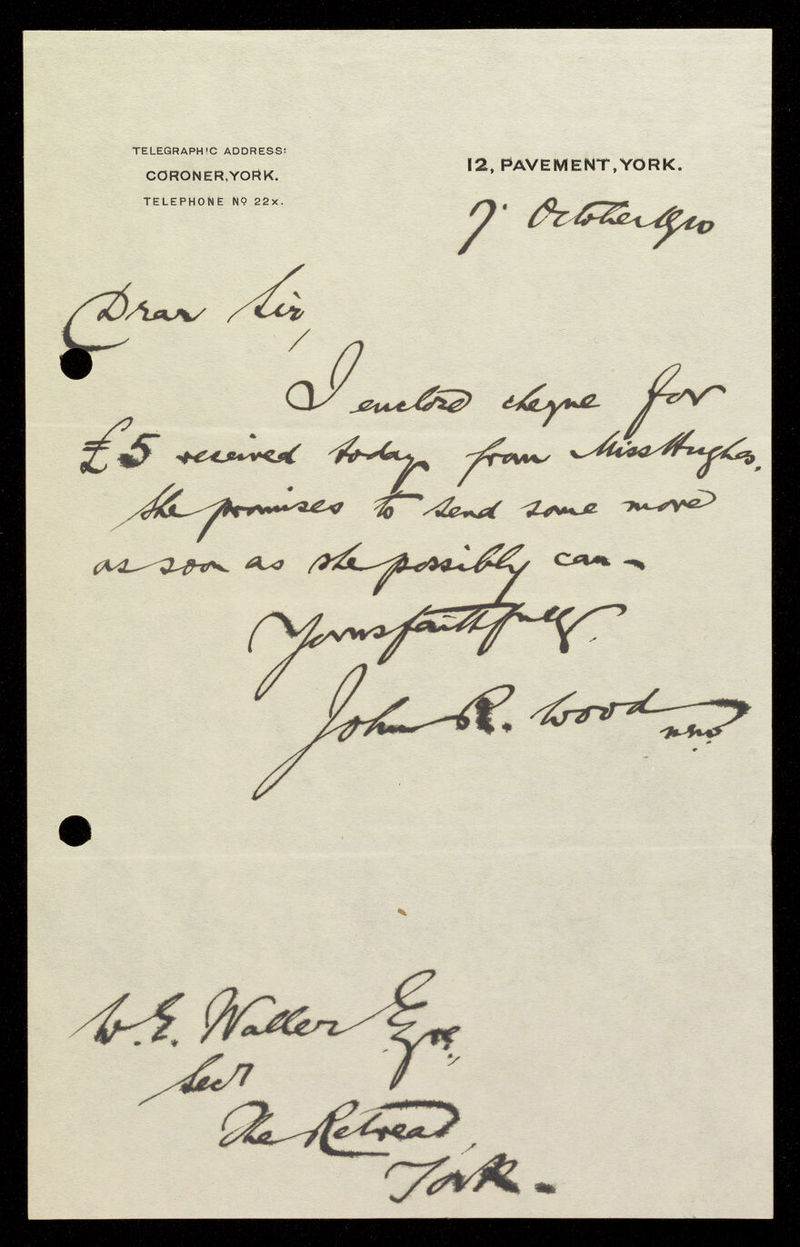 TELEGRAPHIC ADDRESS:
CORONER, YORK.
TELEPHONE Nº 22x.
12, PAVEMENT, YORK.
7. October 1910
Dear Sir,
I enclose cheque for
£5 received today from Miss Hughes.
She promises to send some more
as soon as she possibly can -
Yours faithfully
John R. Wood
W. E. Waller Esqre.,
Secr
The Retreat,
York.